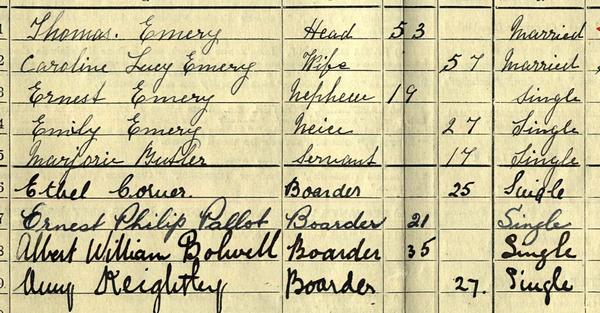 1 Thomas. Emery Head 53 Married
2 Caroline Lucy Emery Wife 57 Married
3 Ernest Emery Nephew 19 Single
4 Emily Emery Neice 27 Single
5 Marjorie Butler Servant 17 Single
6 Ethel Corner. Boarder 25 Single
7 Ernest Philip Pallot Boarder 21 Single
8 Albert William Bolwell Boarder 35 Single
9 Amy Keightley Boarder 27. Single